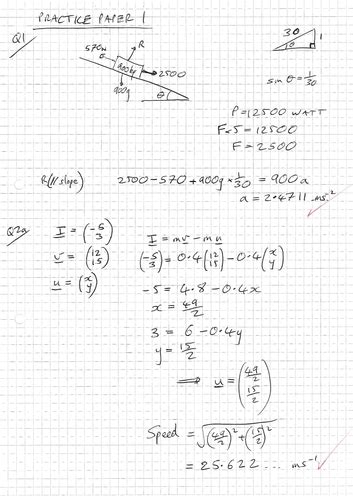 PRACTICE PAPER 1
Q1
570N
R
900kg
2500
900g
θ
30
1
θ
sin θ = 1/30
P = 12500 WATT
F×5 = 12500
F = 2500
R(// slope) 2500 - 570 + 900g × 1/30 = 900a
a = 2.4711 ms⁻²
Q2a
I = (-5 3)
v = (12 15)
u = (x y)
I = mv - mu
(-5 3) = 0.4(12 15) - 0.4(x y)
-5 = 4.8 - 0.4x
x = 49/2
3 = 6 - 0.4y
y = 15/2
⟹ u = (49/2 15/2)
Speed = √((49/2)² + (15/2)²)
= 25.622... ms⁻¹